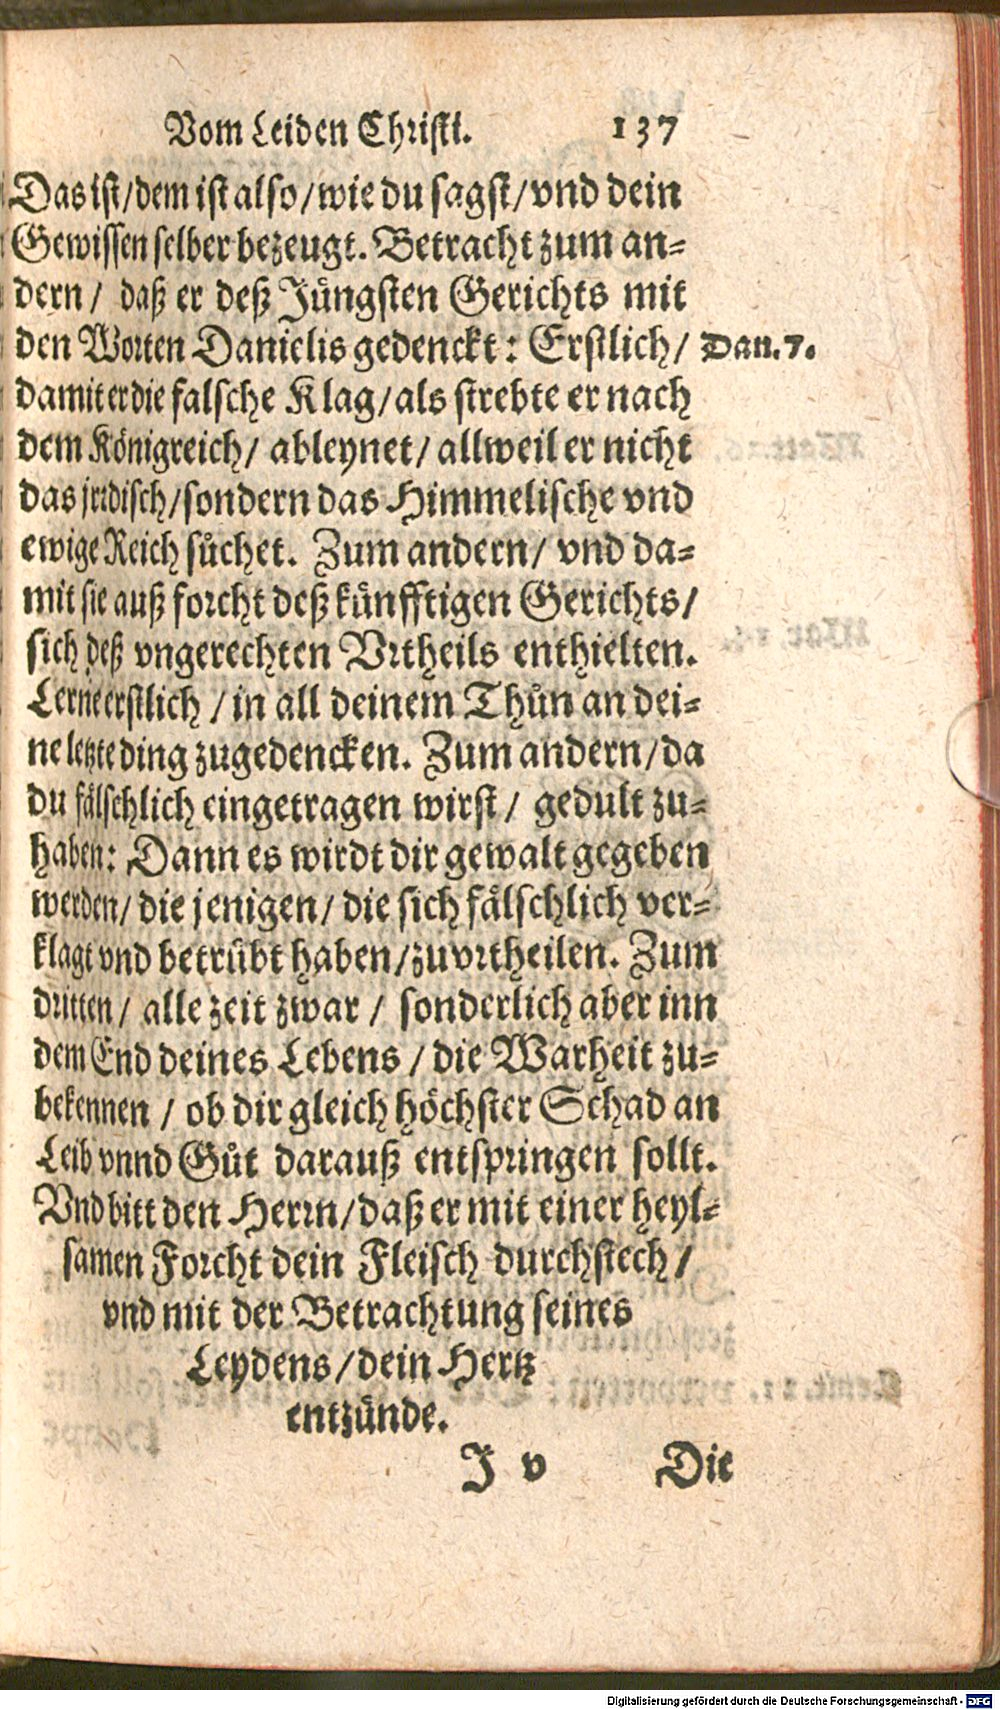 Vom Leiden Christi. 137
Das ist/dem ist also/wie du sagst/vnd dein
Gewissen selber bezeugt. Betracht zum an=
dern/ daß er deß Jüngsten Gerichts mit
den Worten Danielis gedenckt: Erstlich/ Dan. 7.
damit er die falsche Klag/als strebte er nach
dem Königreich/ ableynet/ allweil er nicht
das jrrdisch/sondern das Himmelische vnd
ewige Reich sůchet. Zum andern/ vnd da=
mit sie auß forcht deß künfftigen Gerichts/
sich deß vngerechten Vrtheils enthielten.
Lerne erstlich /in all deinem Thůn an dei=
ne letzte ding zugedencken. Zum andern/da
du fälschlich eingetragen wirst/ gedult zu=
haben: Dann es wirdt dir gewalt gegeben
werden/ die jenigen/ die sich fälschlich ver=
klagt vnd betrübt haben/zuvrtheilen. Zum
dritten/ alle zeit zwar / sonderlich aber inn
dem End deines Lebens / die Warheit zu=
bekennen / ob dir gleich höchster Schad an
Leib vnnd Gůt darauß entspringen sollt.
Vnd bitt den Herrn/daß er mit einer heyl=
samen Forcht dein Fleisch durchstech/
vnd mit der Betrachtung seines
Leydens/dein Hertz
entzünde.
J v Die
Digitalisierung gefördert durch die Deutsche Forschungsgemeinschaft - DFG